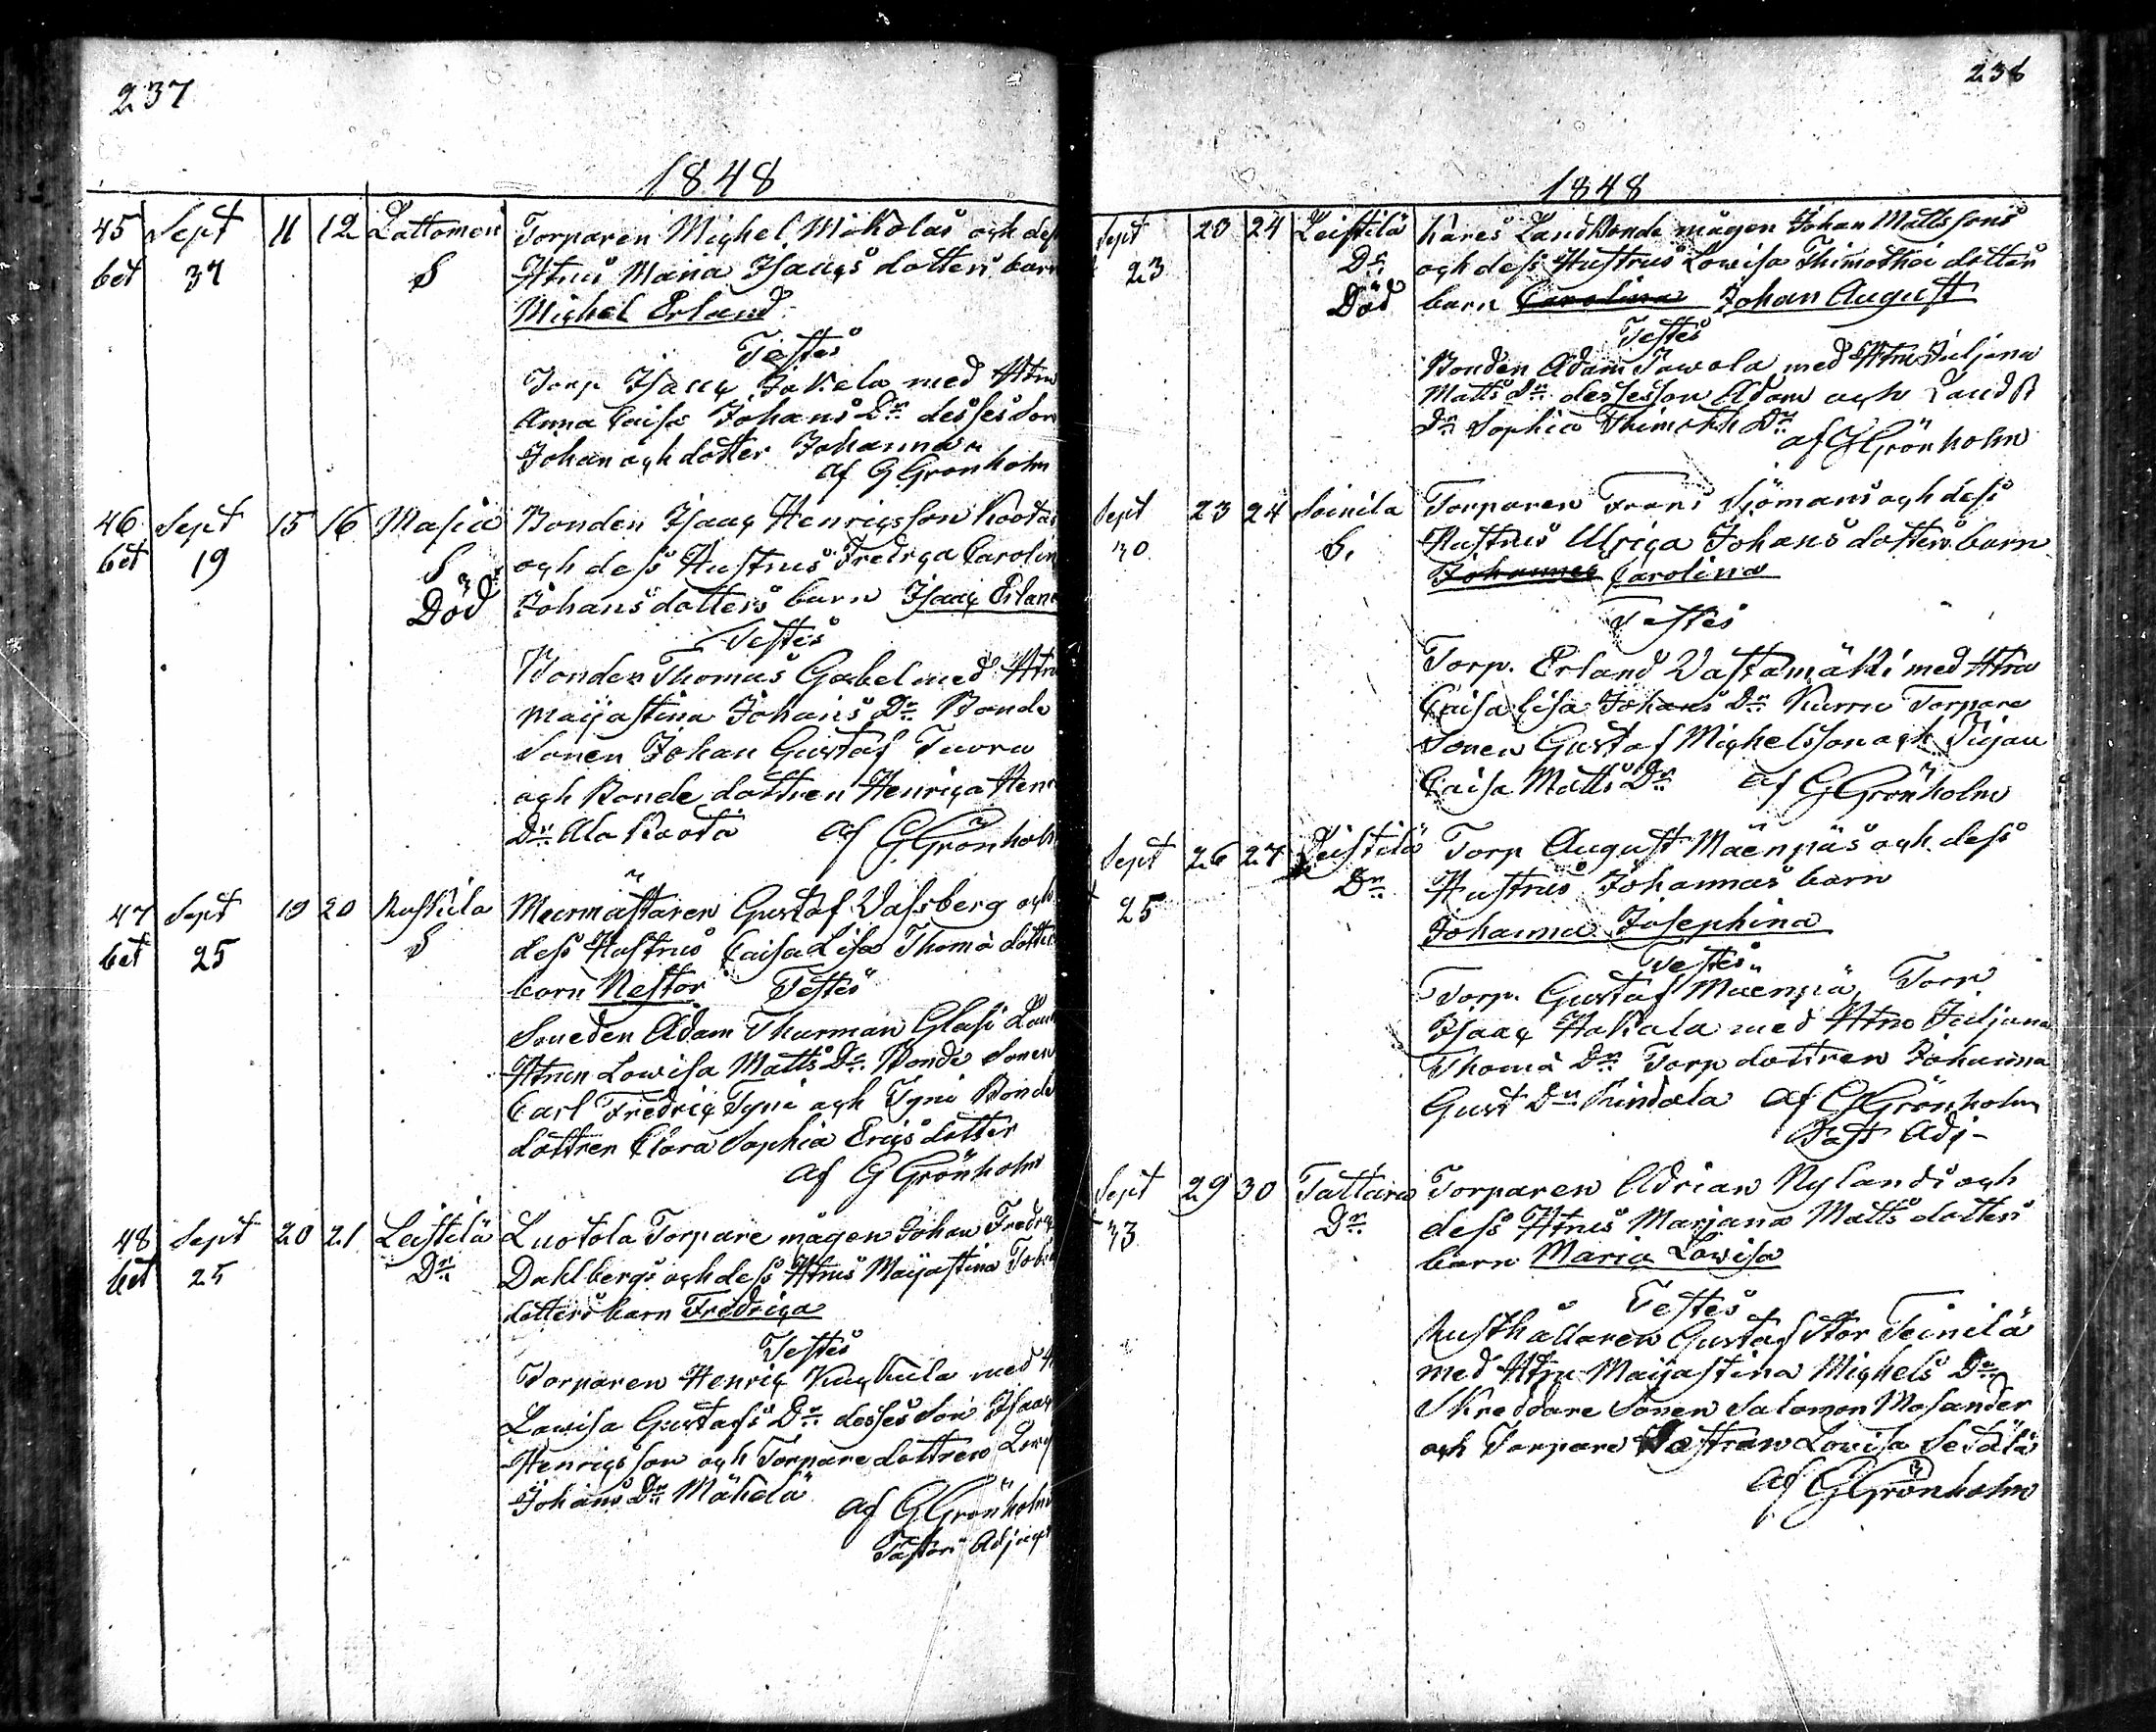 237
1848
45 Sept 11 12 Lattomeri Torparen Michel Mikolas och dess
bet 37 S Hstrus Maria Isaacs dotters barn
Michel Erland
Testes
Torp Isaac Jakola med Hstru
Anna Caisa Johans Dr desses Son
Johan och dotter Johanna
af G Grönholm
46 Sept 15 16 Masia Bonden Isaac Henricsson Kootas
bet 19 S och dess Hustrus Fredrica Carolin
Död Johansdotters barn Isaac Erlan
Testes
Bonden Thomas Gabel med Hstru
Majastina Johans Dr Bonde
Sonen Johan Gustaf Tuoru
och Bonde dottren Henrica Hen
Dr Ala Koota af G Grönholm
47 Sept 19 20 Ruskila Murmästaren Gustaf Valsberg och
bet 25 S dess Hustrus Caisa Lisa Thomä dotters
barn Nestor Testes
Smeden Adam Thurman Glasi
Hstrun Lowisa Matts Dr Bonde Sonen
Carl Fredric Tyni och Tyni Bonde
dottren Clara Sophia Ericsdotter
af G Grönholm
48 Sept 20 21 Leistilä Luotola Torpare mågen Johan Fredric
bet 25 Dr Dahlbergs och dess Hstrus Majastina Tob
dotters barn Fredrica
Testes
Torparen Henric med H
Lowisa Gustafs Dr desses Son Isaac
Henricsson och Torpare dottren
Johans Dr Mäkelä af G Grönholm
Pastors Adjunct
238
1848
Sept 23 24 Leistilä Landbonde mågen Johan Mattssons
23 Dr och dess Hustrus Lowisa Thimothei dotters
Död barn Carolina Johan August
Testes
Bonden Adam Pawola med Hstru Juljana
Matts Dr desses son Adam och Landb
Dr Sophia Thimoth Dr
af G Grönholm
Sept 23 24 Soinila Torparen Frans Sjömans och dess
30 S. Hustrus Ulrica Johans dotters barn
Johannes Carolina
Testes
Torp. Erland Vastamäki med Hstru
Caisa Lisa Johans Dr Kurru Torpare
Sonen Gustaf Michelsson och Pigan
Caisa Matts Dr af G Grönholm
Sept 26 27 Leistilä Torp August Mäenpäs och dess
25 Dr Hustrus Johannas barn
Johanna Josephina
Testes
Torp. Gustaf Mäenpä Torp
Isaac Hakala med Hstru Juljana
Thomä Dr Torp dottren Johanna
Gust Dr af G Grönholm
Past Adj
Sept 29 30 Tattara Torparen Adrian Nylands och
33 Dr dess Hstrus Marjana Matts dotters
barn Maria Lowisa
Testes
Rusthållaren Gustaf Stor Teinilä
med Hstru Majastina Michels Dr
Skreddare Sonen Salomon Mosander
och Torpare Hustrun Lowisa
af G Grönholm